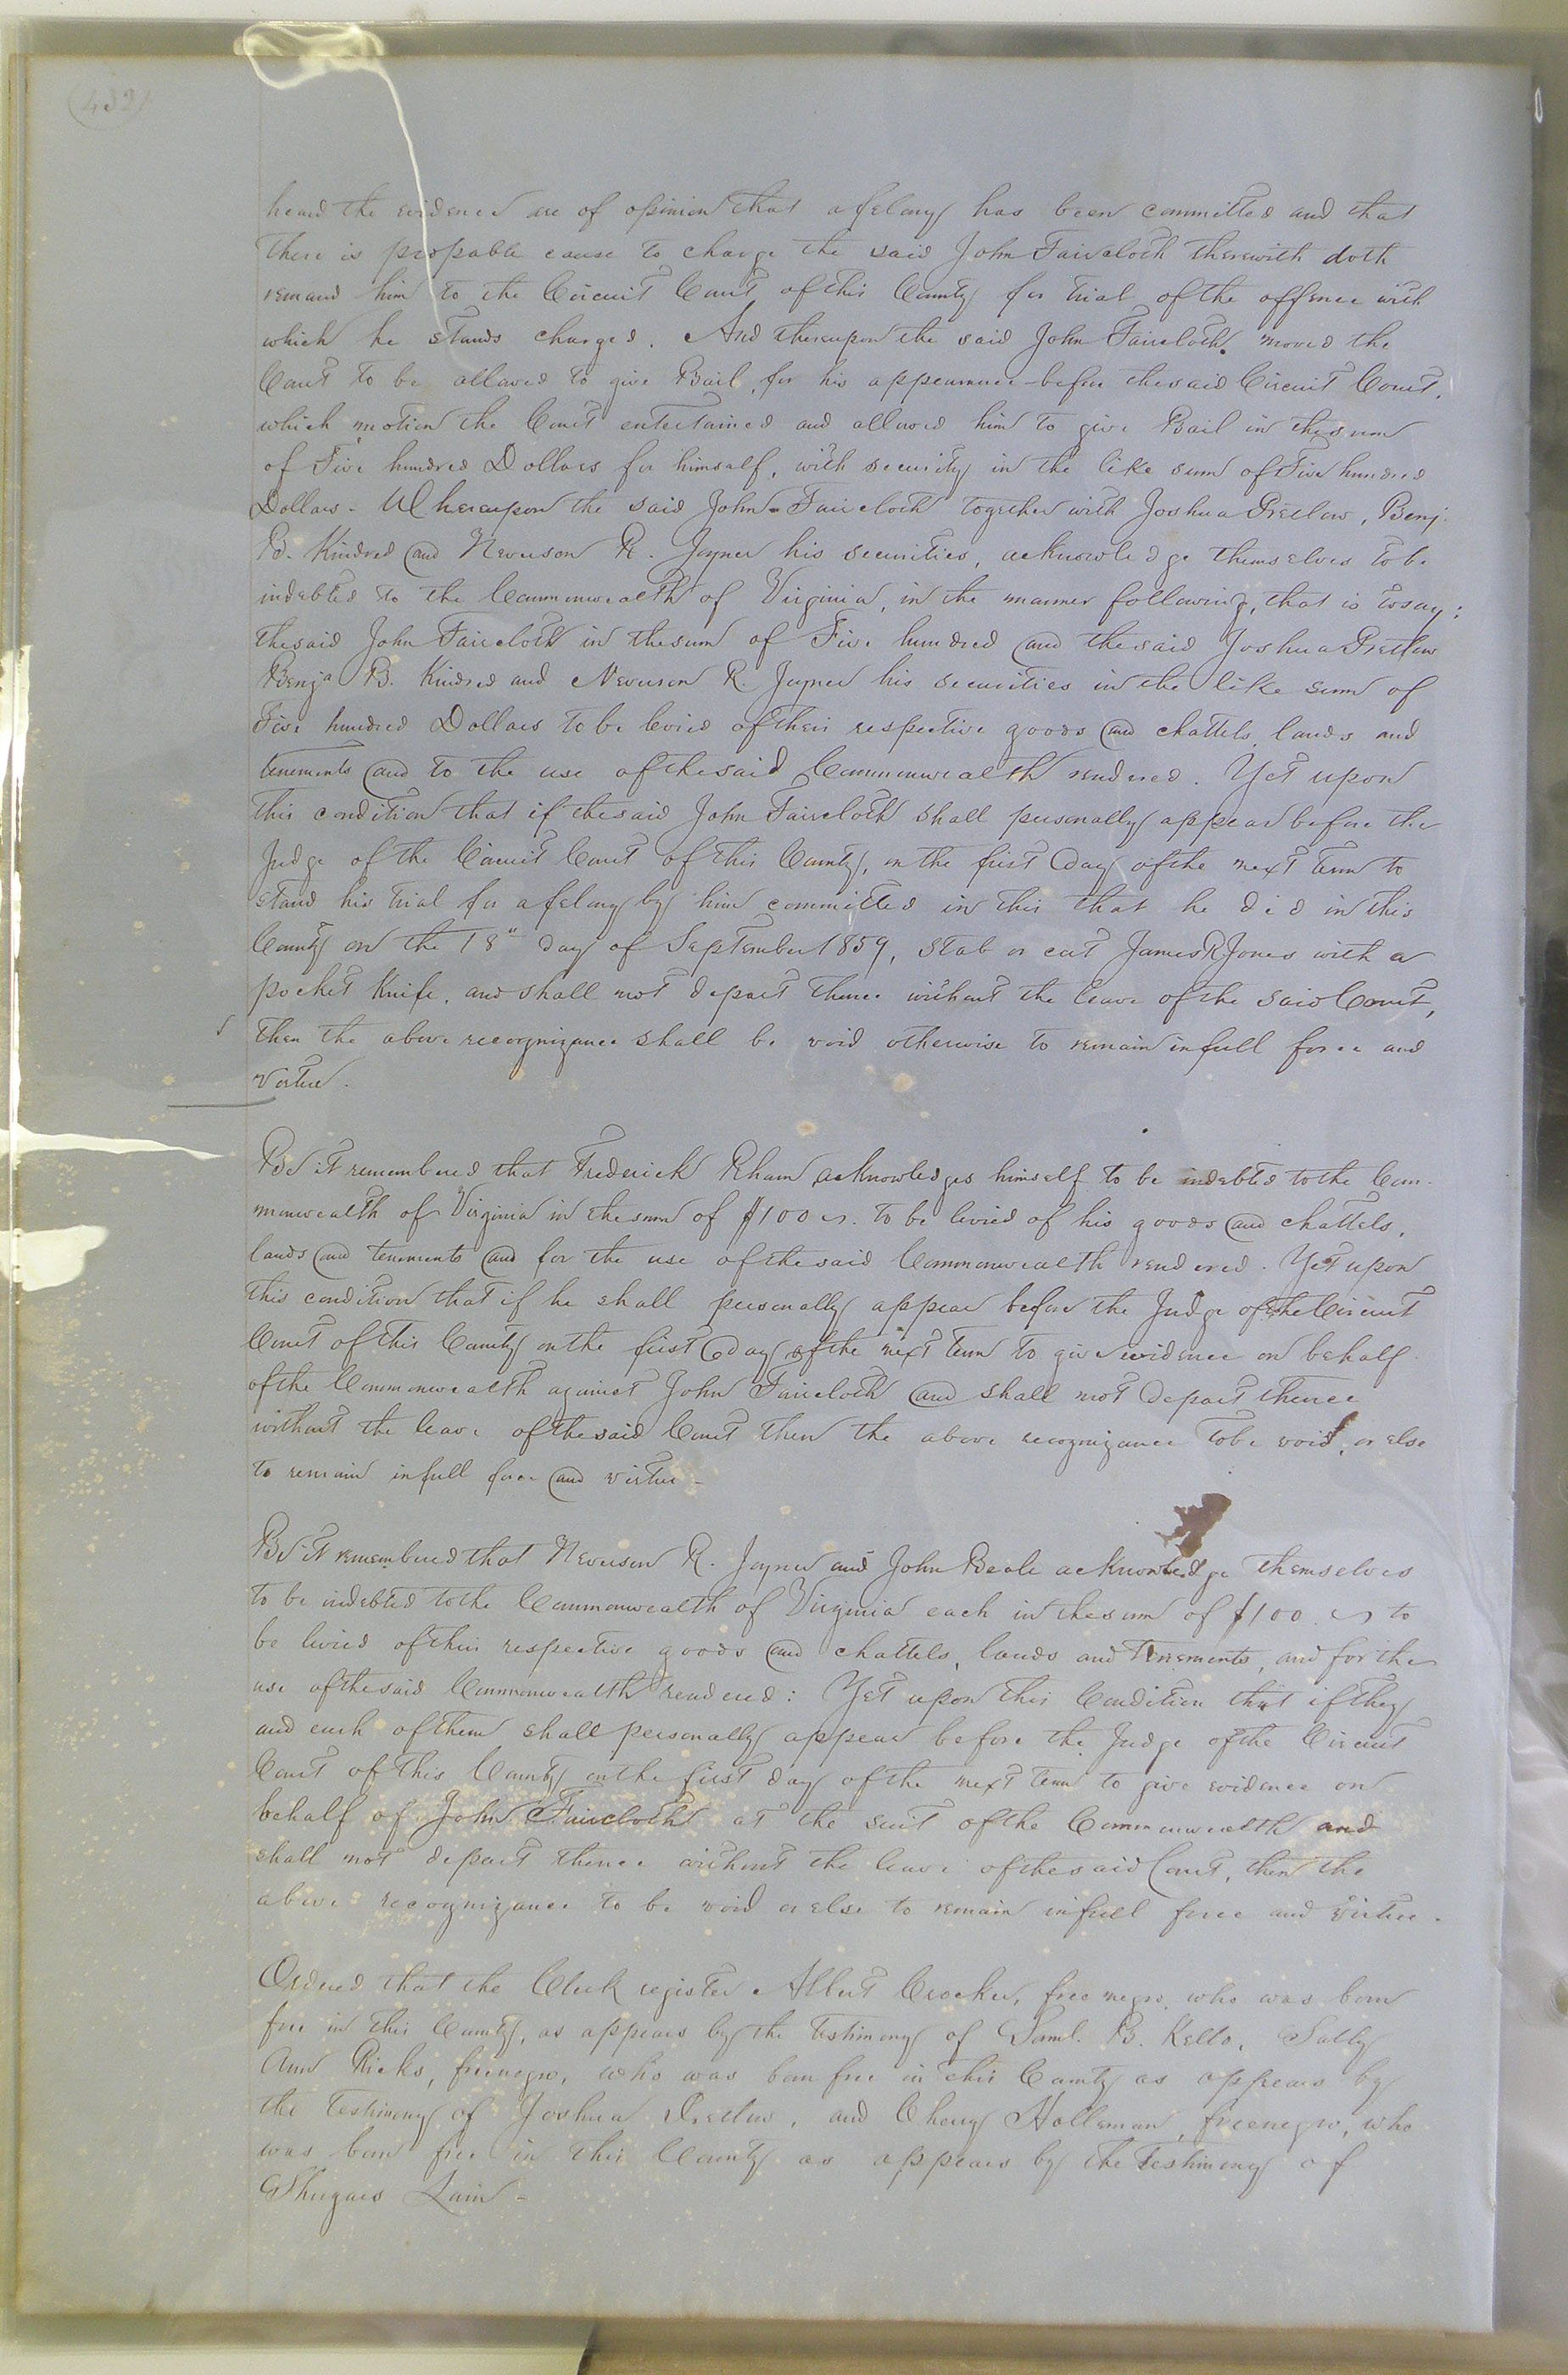 (432)
heard the evidence are of opinion that a felony has been committed and that
there is probable cause to charge the said John Faircloth therewith doth
remand him to the Circuit Court of this County for trial of the offence with
which he stands charged. And thereupon the said John Faircloth moved the
Court to be allowed to give Bail for his appearance before the said Circuit Court,
which motion the Court entertained and allowed him to give Bail in the sum
of Five hundred Dollars for himself, with security in the like sum of Five hundred
Dollars. Whereupon the said John Faircloth together with Joshua Pretlow, Benj.
B. Kindred and Newsom R. Joyner his securities, acknowledge themselves to be
indebted to the Commonwealth of Virginia, in the manner following, that is to say:
the said John Faircloth in the sum of Five hundred and the said Joshua Pretlow
Benja B. Kindred and Newsom R. Joyner his securities in the like sum of
Five hundred Dollars to be levied of their respective goods and chattels, lands and
tenements and to the use of the said Commonwealth rendered. Yet upon
this condition that if the said John Faircloth shall personally appear before the
Judge of the Circuit Court of this County, on the first day of the next term to
stand his trial for a felony by him committed in this that he did in this
County on the 18" day of September 1859, stab or cut James R Jones with a
pocket Knife, and shall not depart thence without the leave of the said Court,
then the above recognizance shall be void otherwise to remain in full force and
virtue.
Be it remembered that Frederick Rham acknowledges himself to be indebted to the Com-
monwealth of Virginia in the sum of $100 to be levied of his goods and chattels,
lands and tenements and for the use of the said Commonwealth rendered. Yet upon
this condition that if he shall personally appear before the Judge of the Circuit
Court of this County on the first day of the next term to give evidence on behalf
of the Commonwealth against John Faircloth and shall not depart thence
without the leave of the said Court then the above recognizance to be void, or else
to remain in full force and virtue -
Be it remembered that Newsom R. Joyner and John Beale acknowledge themselves
to be indebted to the Commonwealth of Virginia each in the sum of $100 to
be levied of their respective goods and chattels, lands and tenements, and for the
use of the said Commonwealth rendered: Yet upon this Condition that if they
and each of them shall personally appear before the Judge of the Circuit
Court of this County on the first day of the next term to give evidence on
behalf of John Faircloth at the suit of the Commonwealth and
shall not depart thence without the leave of the said Court, then the
above recognizance to be void or else to remain in full force and virtue.
Ordered that the Clerk register Albert Crocker, free negro, who was born
free in this County, as appears by the testimony of Saml. B. Kello, Sally
Ann Ricks, free negro, who was born free in this County as appears by
the testimony of Joshua Pretlow, and Cherry Holleman, free negro, who
was born free in this County as appears by the testimony of
Shugars Lain -